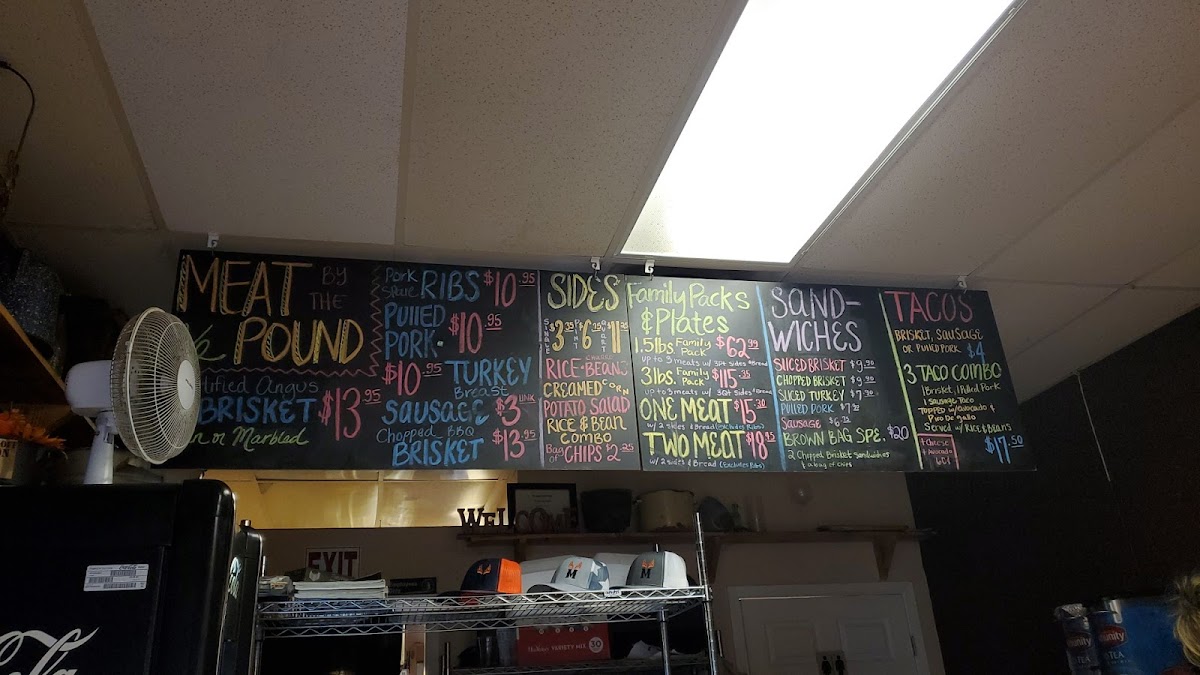 MEAT BY THE
POUND
Angus
BRISKET $13.95
or Marbled
Pork Spare RIBS $10.95
PULLED PORK $10.95
$10.95 TURKEY Breast
SAUSAGE $3 LINK
Chopped BBQ
BRISKET $13.95
SIDES
SINGLE PINT QUART
RICE + BEANS
CREAMED CORN
POTATO SALAD
RICE & BEAN
COMBO
Bag of CHIPS $2.25
Family Packs
& Plates
1.5lbs. Family Pack $62.99
up to 3 meats w/ 3 Pt Sides + Bread
3lbs. Family Pack $115
up to 3 meats w/ 3 Qt Sides + Bread
ONE MEAT $15
w/ 2 sides & Bread (Excludes Ribs)
TWO MEAT $18.95
w/ 2 sides & Bread (Excludes Ribs)
SAND-
WICHES
SLICED BRISKET
CHOPPED BRISKET
SLICED TURKEY
PULLED PORK
SAUSAGE
BROWN BAG SPE. $20
2 Chopped Brisket Sandwiches
& bag of chips
TACOS
BRISKET, SAUSAGE
OR PULLED PORK $4
3 TACO COMBO
1 Brisket 1 Pulled Pork
1 Sausage Taco
Topped w/ Avocado &
Pico De gallo
Served w/ RICE & BEANS
$17.50
+ Cheese
+ Avocado
WELCOME
EXIT
M
M
VARIETY MIX 30
TEA